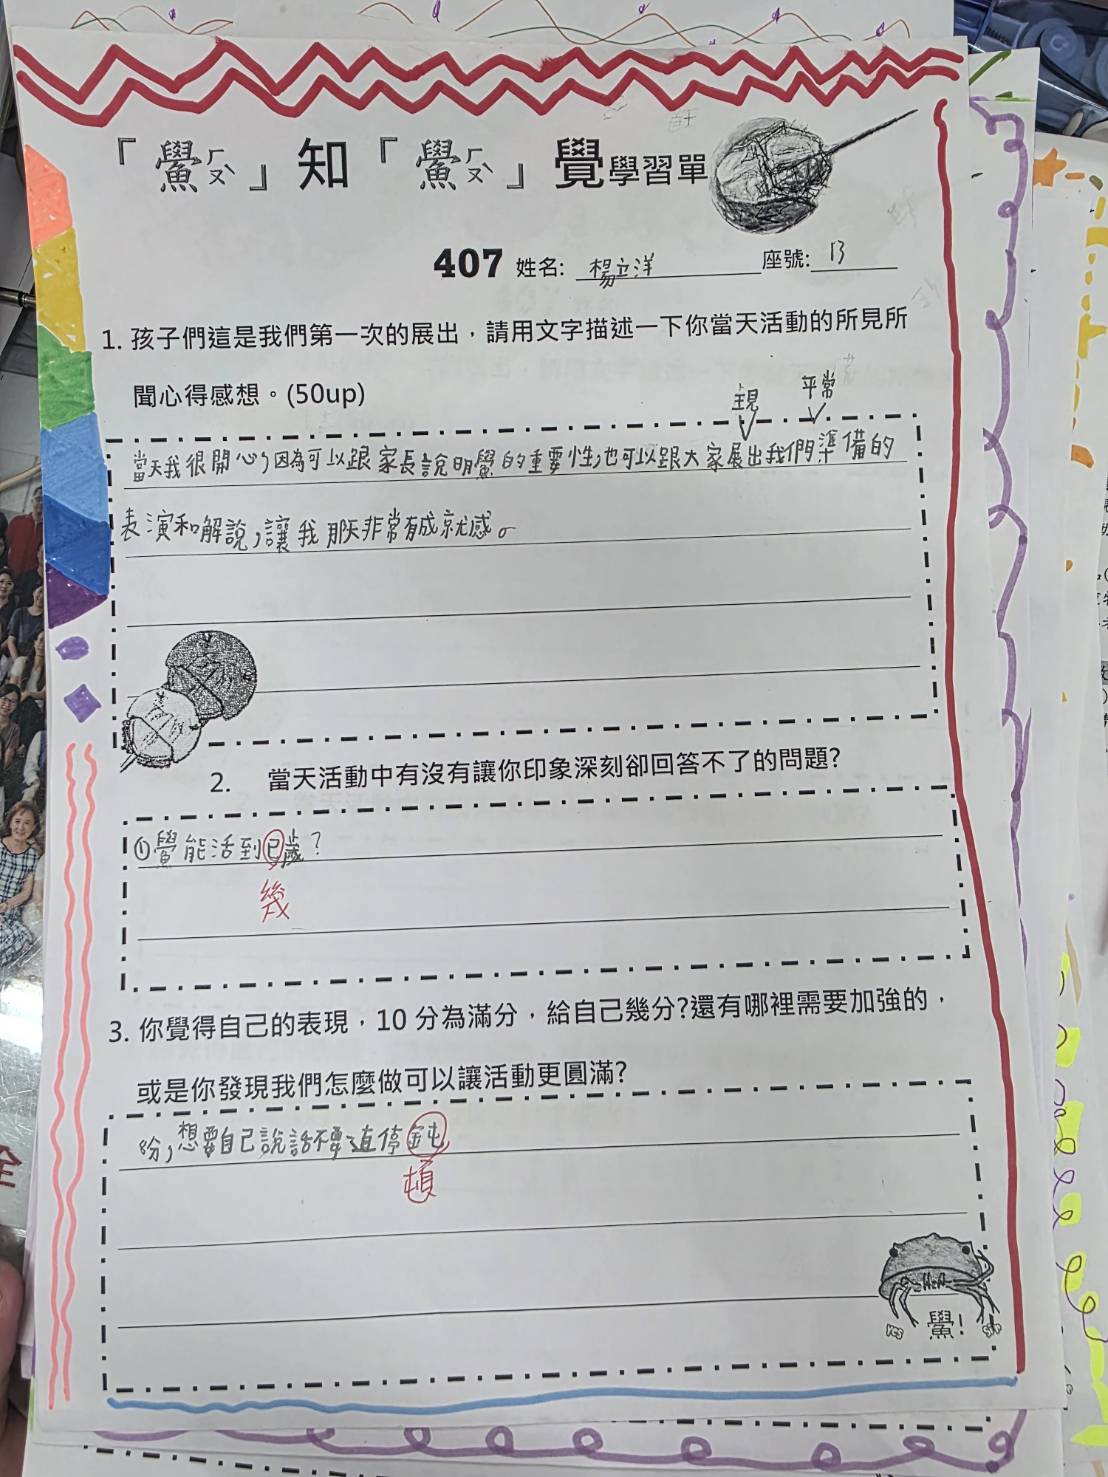 「鱟ㄏㄡˋ」知「鱟ㄏㄡˋ」覺學習單
407 姓名: 楊立洋 座號: 13
1. 孩子們這是我們第一次的展出,請用文字描述一下你當天活動的所見所
聞心得感想。(50up)
平常
當天我很開心,因為可以跟家長說明鱟的重要性,也可以跟大家展出我們準備的
表演和解說,讓我那天非常有成就感。
2. 當天活動中有沒有讓你印象深刻卻回答不了的問題?
①鱟能活到已歲?
幾
3. 你覺得自己的表現,10 分為滿分,給自己幾分?還有哪裡需要加強的,
或是你發現我們怎麼做可以讓活動更圓滿?
分,想要自己說話不要一直停鈍
頓
yes 鱟!